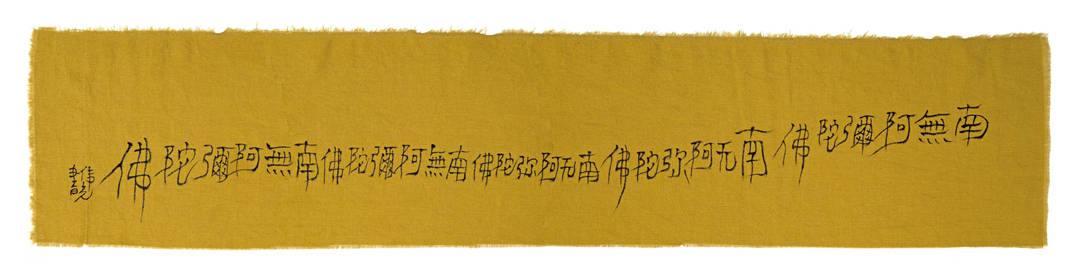 南無阿彌陀佛南无阿弥陀佛南无阿弥陀佛南無阿彌陀佛南無阿彌陀佛